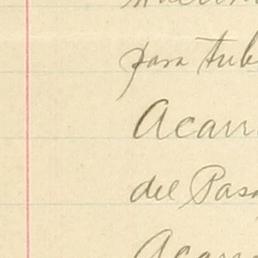 para tub
Acan
del Pasa
Acan